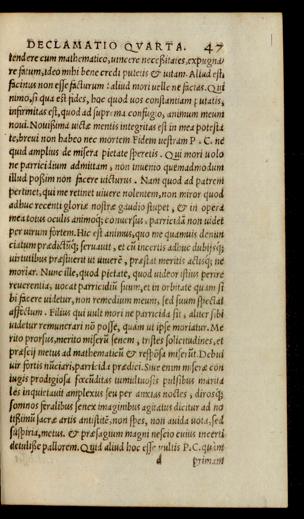 DECLAMATIO QVARTA. 47
tendere cum mathematico, uincere necessitates, expugna-
re fatum, ideo mihi bene credi putetis & uitam. Aliud est,
facinus non esse facturum: aliud mori uelle ne facias. Qui
nimo, si qua est fides, hoc quod uos constantiam putatis,
infirmitas est, quod ad suprema confugio, animum meum
noui. Nouissima uictæ mentis integritas est in mea potesta
te, breui non habeo nec mortem Fidem uestram P. C. ne
quid amplius de misera pietate speretis. Qui mori uolo
ne parricidium admittam, non inuenio quemadmodum
illud possim non facere uicturus. Nam quod ad patrem
pertinet, qui me retinet uiuere nolentem, non miror quod
adhuc recenti gloriæ nostræ gaudio stupet, & in opera
mea totus oculis animoq; conuersus, parricidam non uidet
per uirum fortem. Hic est animus, quo me quamuis denun
ciatum prædictumq; seruauit, et cum incertis adhuc dubijsq;
uirtutibus præstiterit ut uiuerem, præstat meritis actisq; ne
moriar. Nunc ille, quod pietate, quod uideor istius perire
reuerentia, uocat parricidium suum, et in orbitate quam si
bi facere uidetur, non remedium meum, sed suum spectat
affectum. Filius qui uult mori ne parricida sit, aliter sibi
uidetur remunerari non posse, quam ut ipse moriatur. Me
rito prorsus, merito miserum senem, tristes solicitudines, et
præscij metus ad mathematicum & responsa miserunt. Debui
uir fortis nunciari, parricida prædici. Siue enim miseræ con
iugis prodigiosa fœcunditas tumultuosis pulsibus marita
les inquietauit amplexus seu per anxias noctes, dirosq;
somnos feralibus senex imaginibus agitatus dicitur ad no
tissimum sacræ artis antistitem. non spes, non auida uota, sed
suspiria, metus, & præsagium magni nescio cuius incerti
detulisse pallorem. Quid aliud hoc esse uultis P. C. quam
d primam